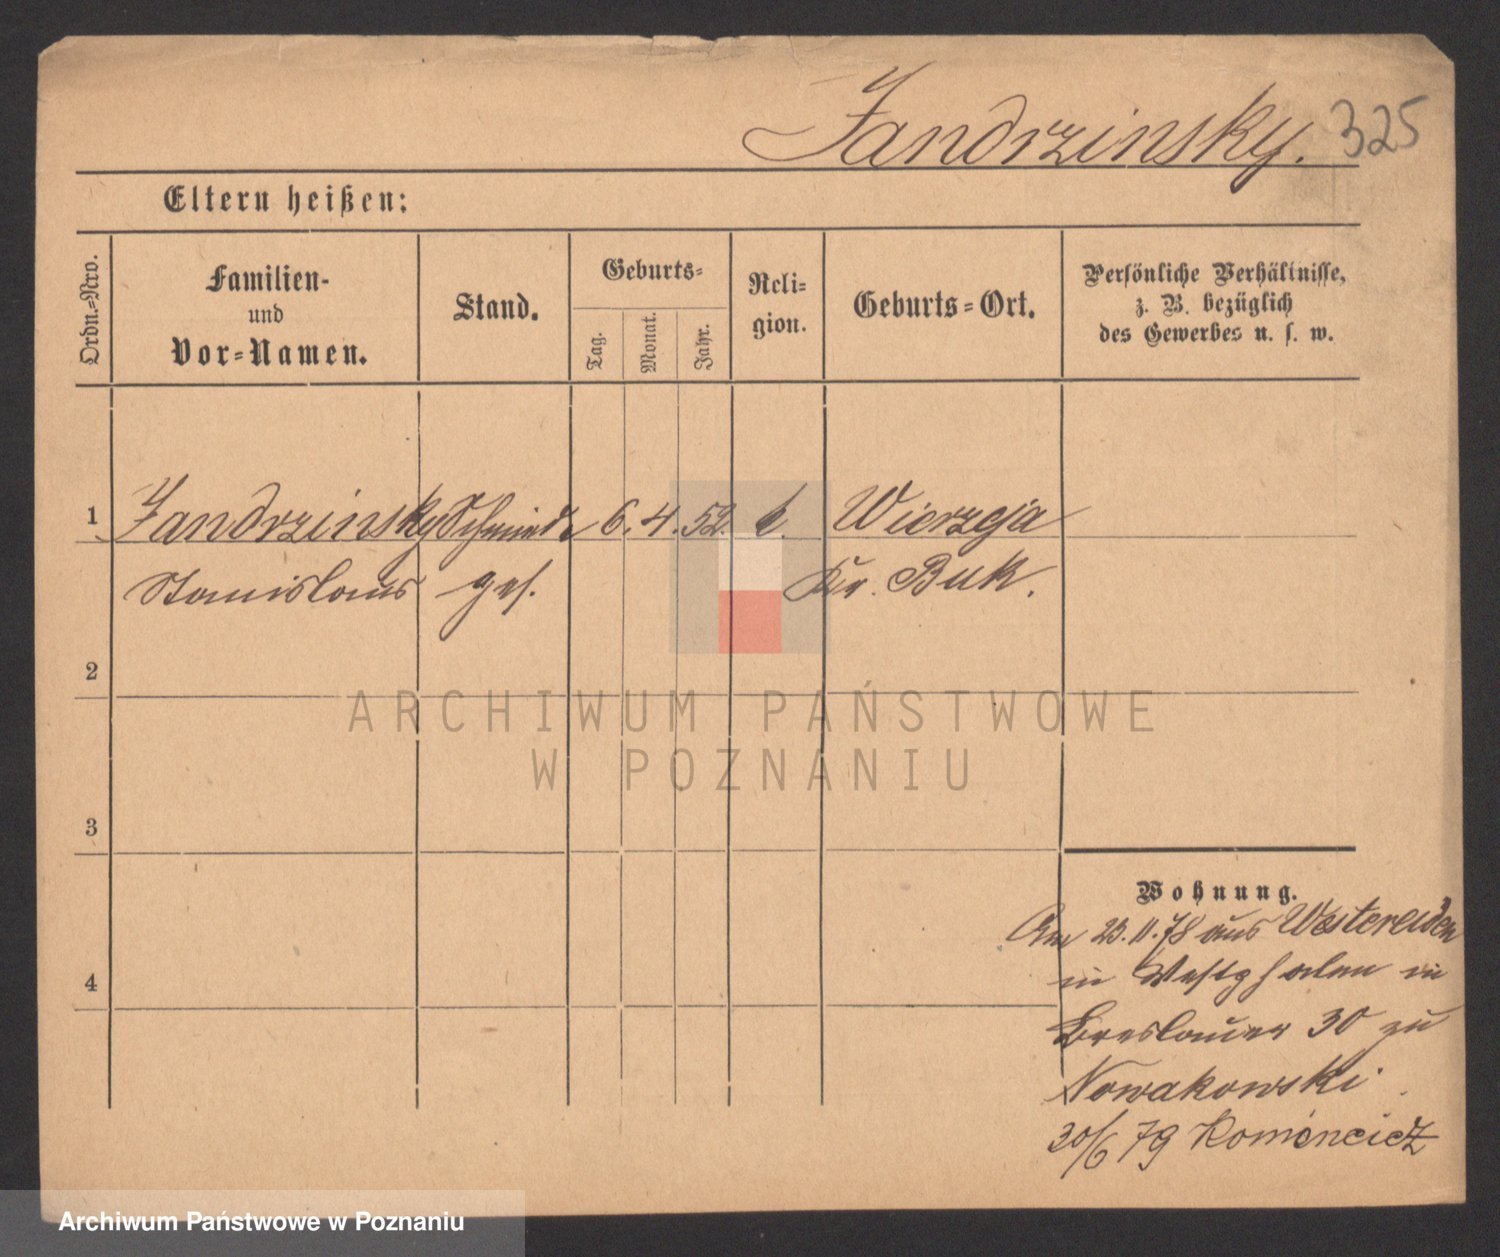 Jandrzinsky. 325
Eltern heißen:
Ordn.-Nro.
Familien-
und
Vor-Namen.
Stand.
Geburts-
Tag.
Monat.
Jahr.
Reli-
gion.
Geburts-Ort.
Persönliche Verhältnisse,
z. B. bezüglich
des Gewerbes u. s. w.
1 Jandrzinsky Schmied 6. 4. 52. k. Wierzeja
Stanislaus ges. Kr. Buk.
2
3
4
Wohnung.
Am 23.11.78 aus Westereiden
in Westphalen in
Breslauer 30 zu
Nowakowski
30/6 79
ARCHIWUM PAŃSTWOWE
W POZNANIU
Archiwum Państwowe w Poznaniu